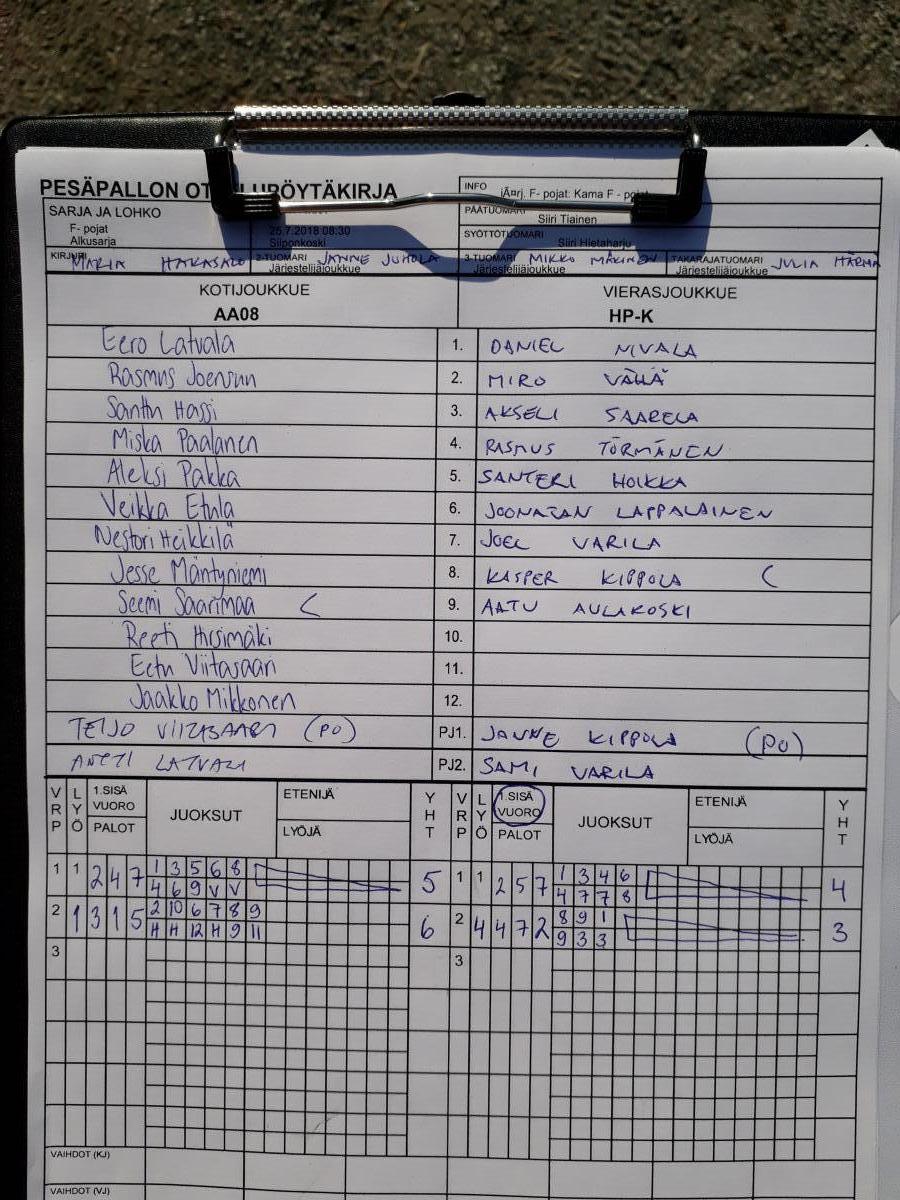 PESÄPALLON OT
SARJA JA LOHKO
F- pojat
Alkusarja
25.7.2018 08:30
Siiponkoski
INFO jÃ¤rj. F- pojat: Kama F - pojat
PÄÄTUOMARI
Siiri Tiainen
SYÖTTÖTUOMARI
Siiri Hietaharju
KIRJURI MARIA
2-TUOMARI JANNE JUHOLA
Järjestelijäjoukkue
3-TUOMARI MIKKO MÄKINEN
Järjestelijäjoukkue
TAKARAJATUOMARI JULIA HÄRMÄ
Järjestelijäjoukkue
KOTIJOUKKUE VIERASJOUKKUE
AA08 HP-K
Eero Latvala 1. DANIEL NIVALA
Rasmus Joensuu 2. MIRO VÄHÄ
Santtu Hassi 3. AKSELI SAARELA
Miska Paalanen 4. RASMUS TÖRMÄNEN
Aleksi Pakka 5. SANTERI HOIKKA
Veikka Etula 6. JOONATAN LAPPALAINEN
Nestori Heikkilä 7. JOEL VARILA
Jesse Mäntyniemi 8. KASPER KIPPOLA (
Seemi Saarimaa < 9. AATU AULAKOSKI
Reeti Hirsimäki 10.
Eetu Viitasaari 11.
Jaakko Mikkonen 12.
TEIJO VIITASAARI (PO) PJ1. JANNE KIPPOLA (PO)
ANTTI LATVALA PJ2. SAMI VARILA
VRP LYÖ 1.SISÄ VUORO PALOT JUOKSUT ETENIJÄ LYÖJÄ YHT VRP LYÖ 1.SISÄ VUORO PALOT JUOKSUT ETENIJÄ LYÖJÄ YHT
1 1 2 4 7 1 3 5 6 8 5 1 1 2 5 7 1 3 4 6 4
4 6 9 V V 4 7 7 8
2 1 3 1 5 2 10 6 7 8 9 6 2 4 4 7 2 8 9 1 3
H H 12 H 9 11 9 3 3
3 3
VAIHDOT (KJ)
VAIHDOT (VJ)